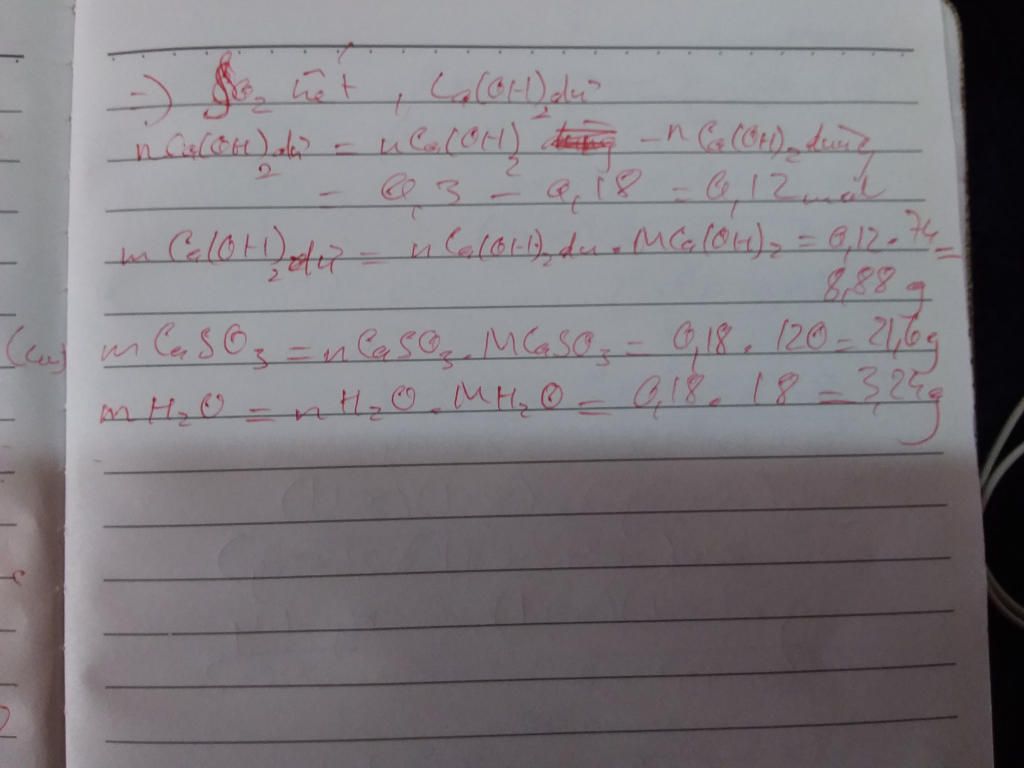 => SO2 hết, Ca(OH)2 dư
nCa(OH)2 dư = nCa(OH)2 - nCa(OH)2 dùng
= 0,3 - 0,18 = 0,12 mol
mCa(OH)2 dư = nCa(OH)2 dư . MCa(OH)2 = 0,12 . 74 =
8,88 g
mCaSO3 = nCaSO3 . MCaSO3 = 0,18 . 120 = 21,6g
mH2O = nH2O . MH2O = 0,18 . 18 = 3,24g